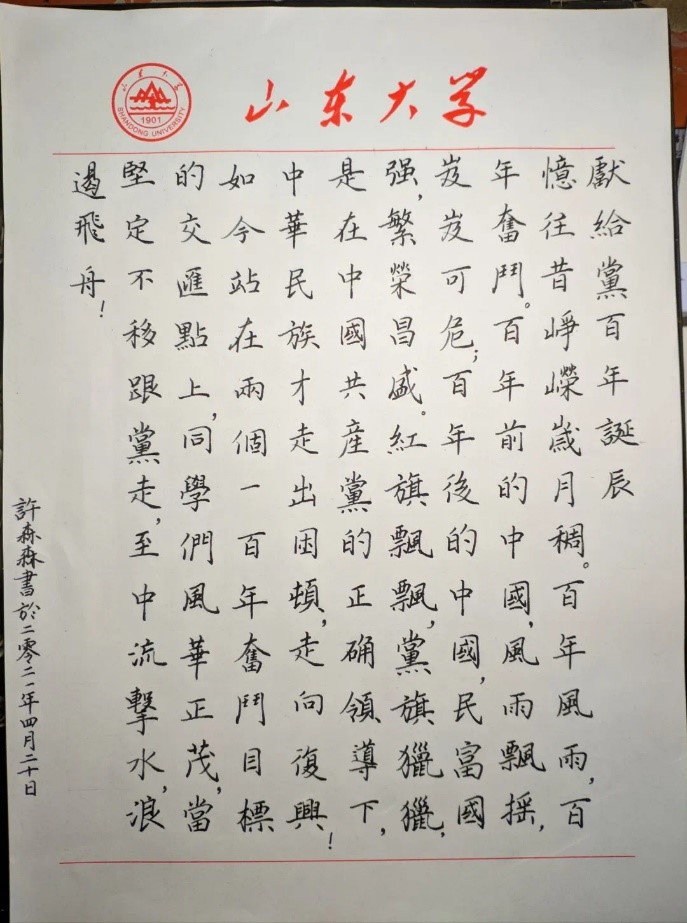 山东大学
SHANDONG UNIVERSITY
1901
山东大学
獻給黨百年誕辰
憶往昔崢嶸歲月稠。百年風雨，百
年奮鬥。百年前的中國，風雨飄摇，
岌岌可危；百年後的中國，民富國
强，繁榮昌盛。紅旗飄飄，黨旗獵獵，
是在中國共産黨的正确領導下，
中華民族才走出困頓，走向復興！
如今站在兩個一百年奮鬥目標
的交匯點上，同學們風華正茂，當
堅定不移跟黨走，至中流擊水，浪
遏飛舟！
許森森書於二零二一年四月二十日